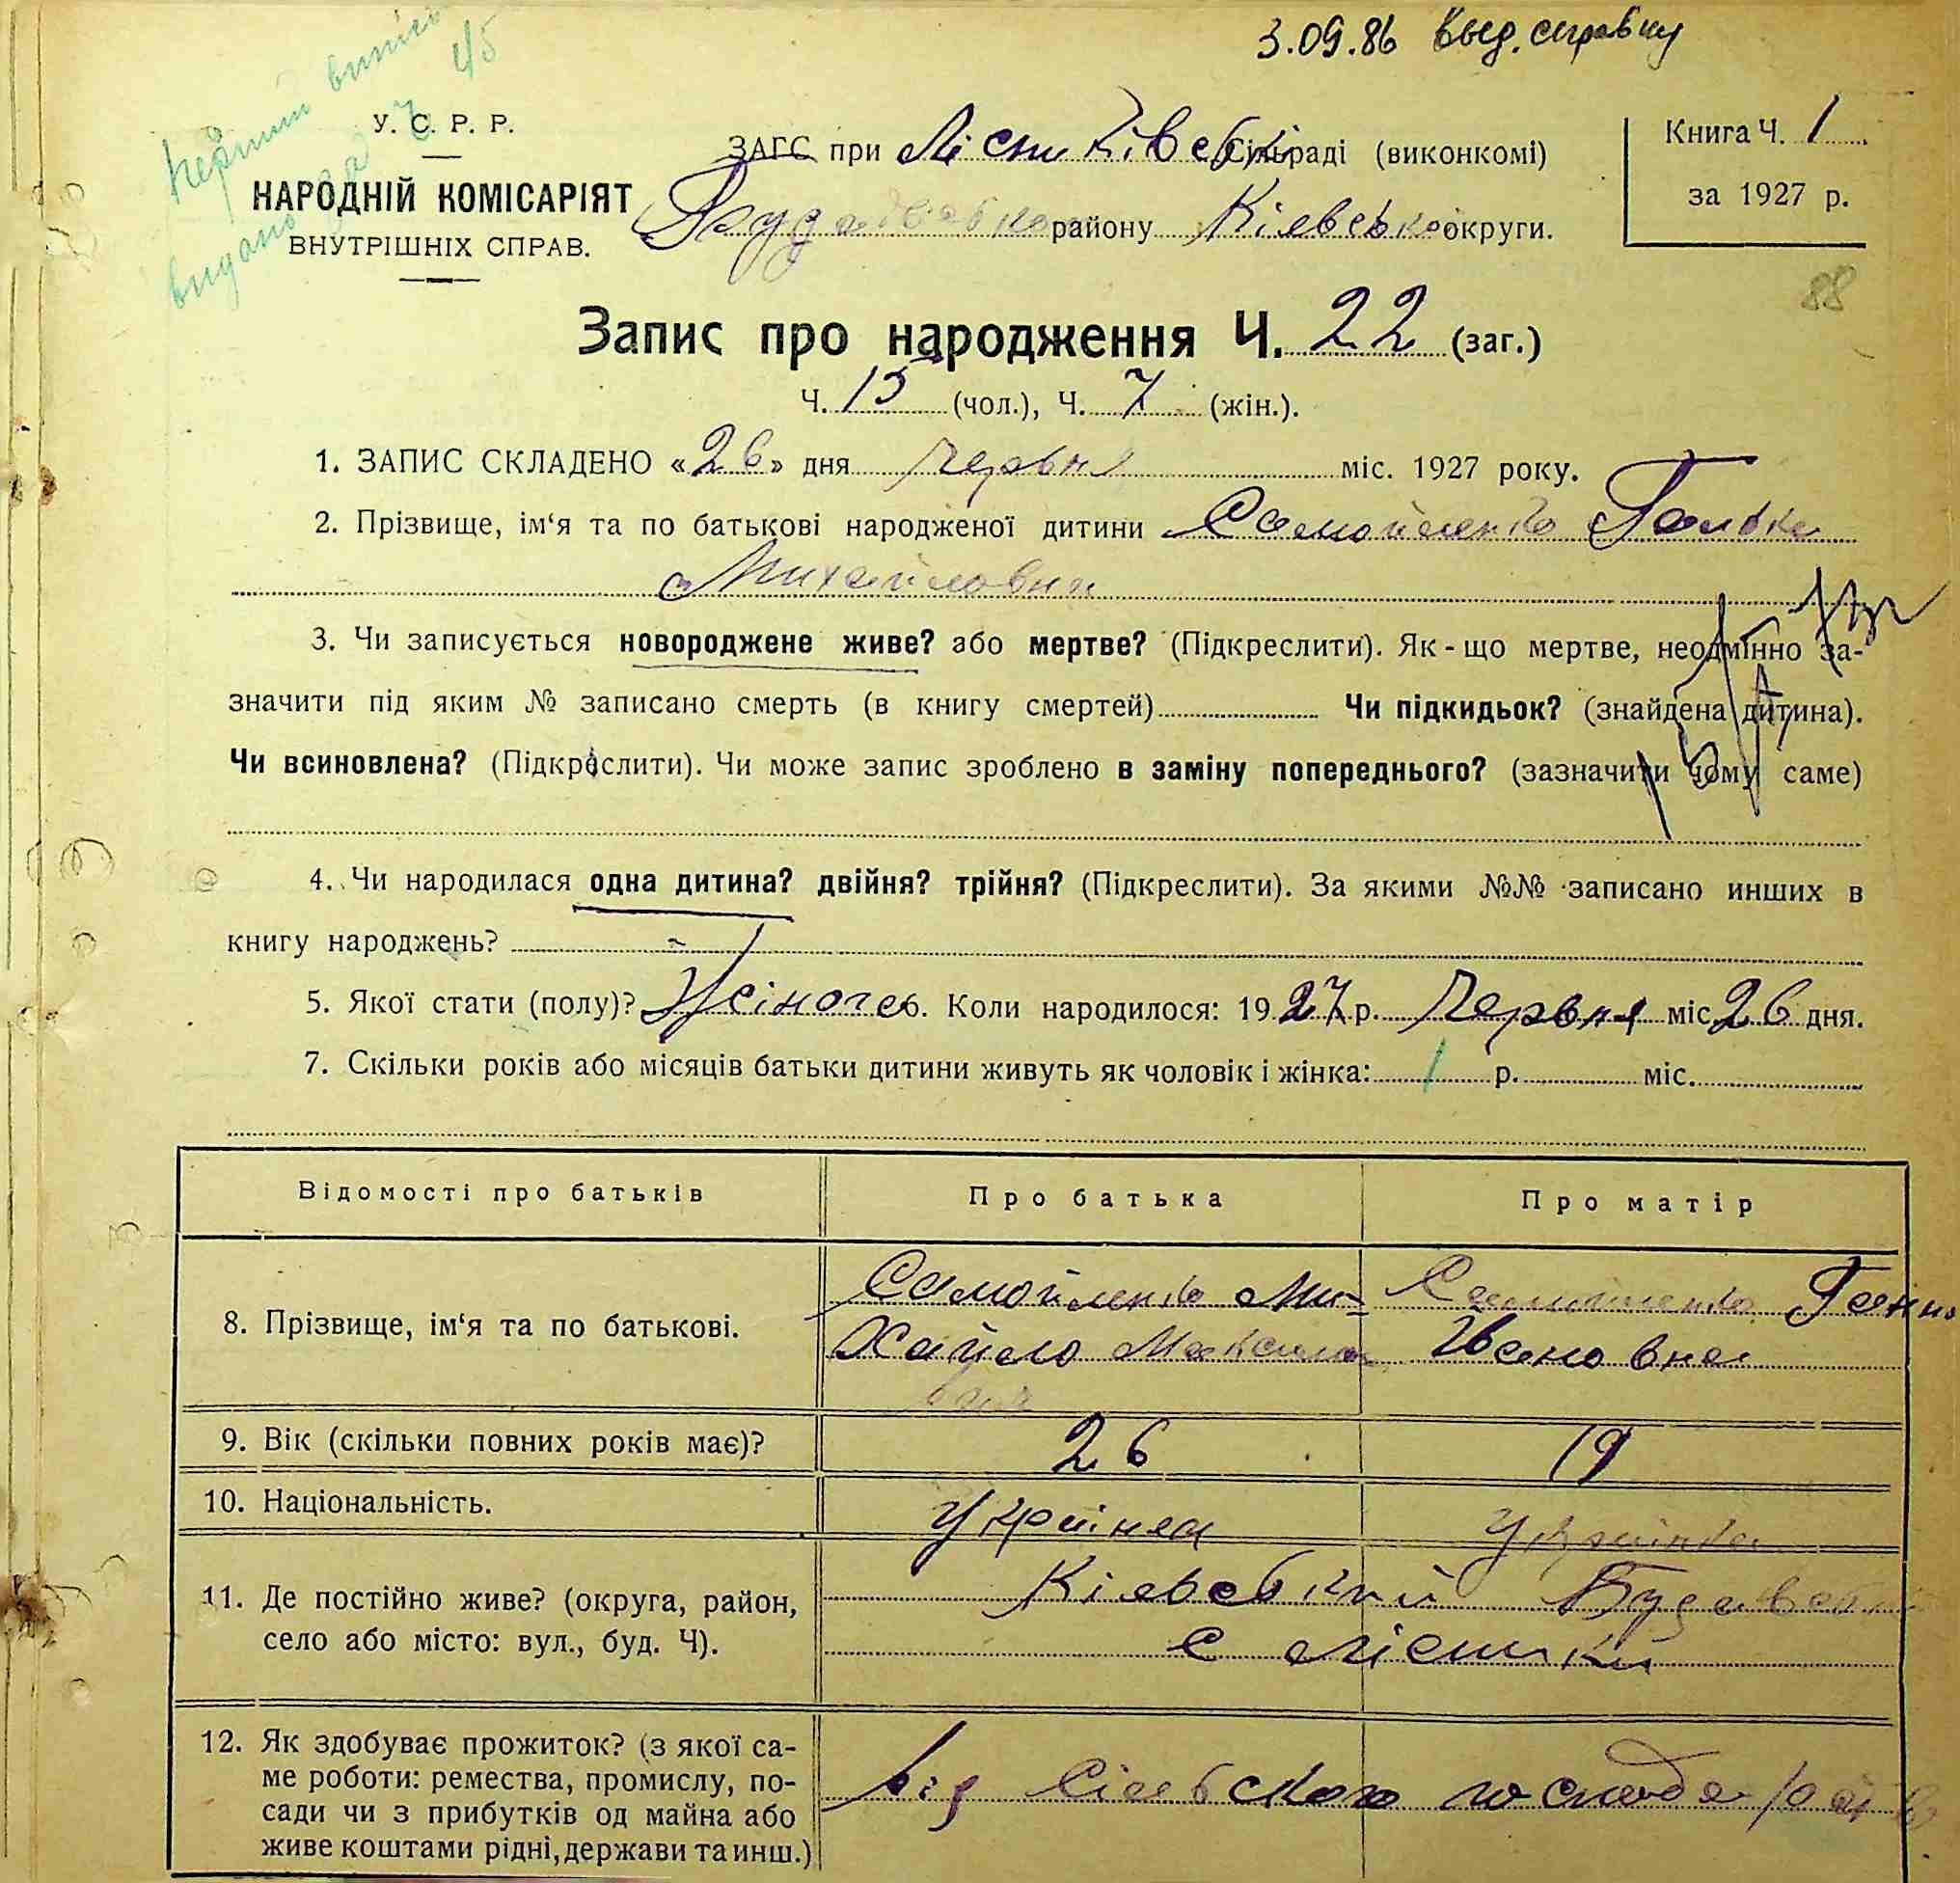 3.09.86 выд. справку
перший випис
видано за Ч 45
У. С. Р. Р.
НАРОДНІЙ КОМІСАРІЯТ
ВНУТРІШНІХ СПРАВ.
ЗАГС при Лісниківській сільраді (виконкомі)
району Київської округи.
Книга Ч. 1
за 1927 р.
88
Запис про народження Ч. 22 (заг.)
Ч. 15 (чол.), Ч. 7 (жін.).
1. ЗАПИС СКЛАДЕНО «26» дня Червня міс. 1927 року.
2. Прізвище, ім‘я та по батькові народженої дитини Самойленко Галька
Михайловна
3. Чи записується новороджене живе? або мертве? (Підкреслити). Як-що мертве, неодмінно за-
значити під яким № записано смерть (в книгу смертей) Чи підкидьок? (знайдена дитина).
Чи всиновлена? (Підкреслити). Чи може запис зроблено в заміну попереднього? (зазначити чому саме)
4. Чи народилася одна дитина? двійня? трійня? (Підкреслити). За якими №№ записано инших в
книгу народжень?
5. Якої стати (полу)? Жіночої 6. Коли народилося: 1927 р. Червня міс. 26 дня.
7. Скільки років або місяців батьки дитини живуть як чоловік і жінка: 1 р. міс.
Відомості про батьків Про батька Про матір
8. Прізвище, ім‘я та по батькові.
Самойленко Ми-
хайло Максимо
вич
Самойленко Ганна
Івановна
9. Вік (скільки повних років має)? 26 19
10. Національність. Українец Українка
11. Де постійно живе? (округа, район,
село або місто: вул., буд. Ч).
Кіевський Будаевськ
с Лісники
12. Як здобуває прожиток? (з якої са-
ме роботи: ремества, промислу, по-
сади чи з прибутків од майна або
живе коштами рідні, держави та инш.)
від сільського господарства